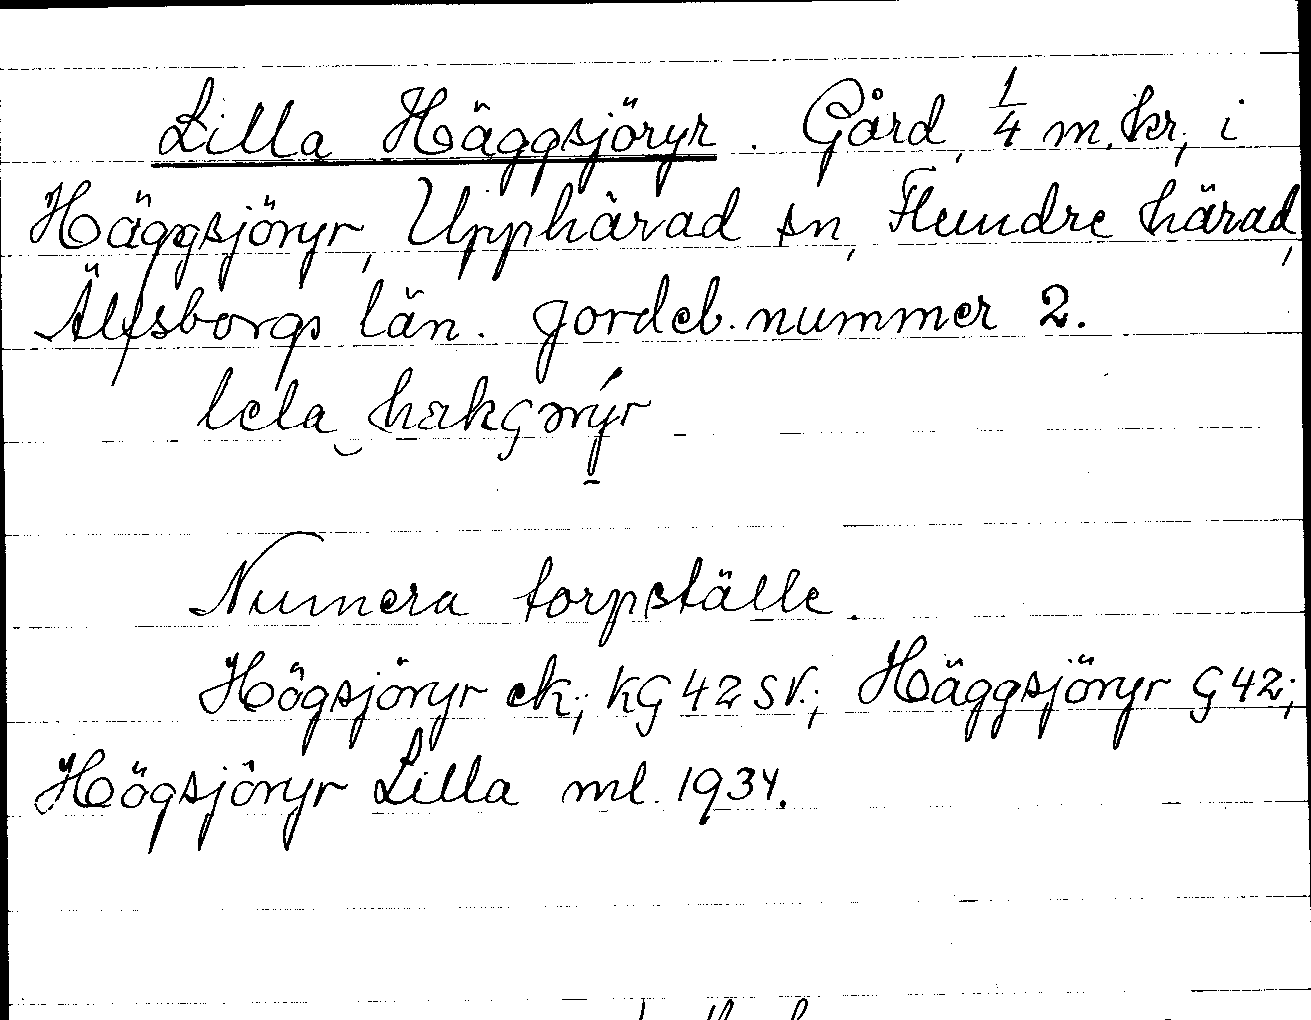 Lilla Häggsjöryr. Gård, 1/4 m. kr, i
Häggsjöryr, Upphärad sn, Flundre härad,
Älfsborgs län. Jordeb. nummer 2.
lela
Numera torpställe.
Högsjöryr ek; KG 42 SV.; Häggsjöryr G 42;
Högsjöryr Lilla ml. 1934.